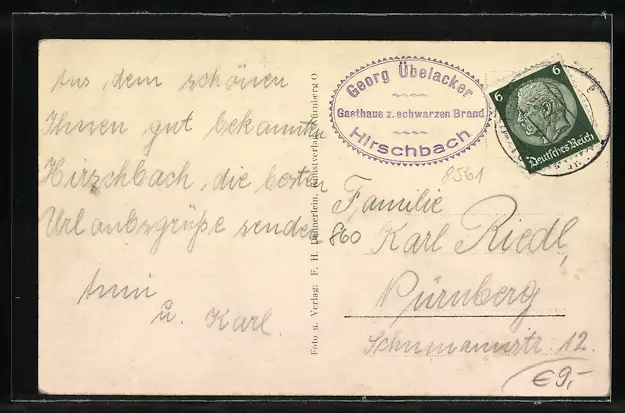 Aus dem schönen
Ihnen gut bekannten
Hirschbach, die besten
Urlaubsgrüße senden
Anni
u. Karl.
Foto u. Verlag: F. H. Dannerlein, Kunstverlag, Nürnberg O
Georg Übelacker
Gasthaus z. schwarzen Brand
Hirschbach
6 6
Deutsches Reich
8561
Familie
860
Karl Riedl,
Nürnberg
Schumannstr. 12.
€9,-